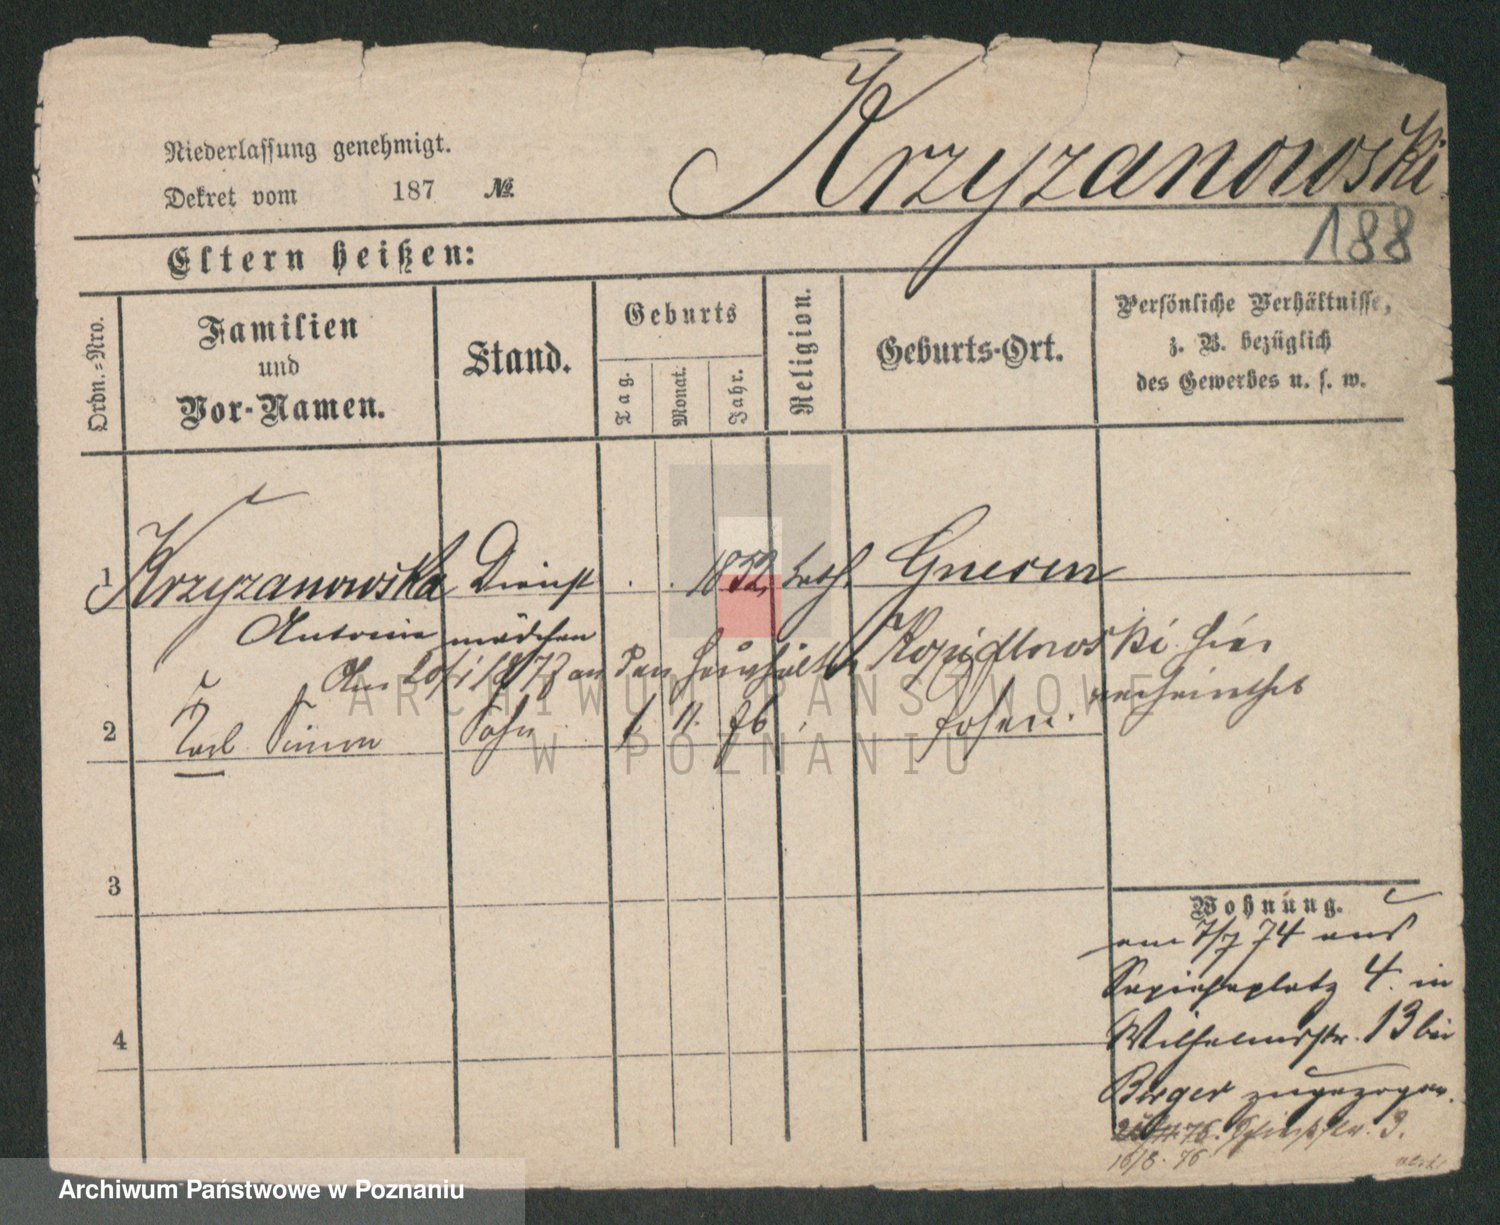 Krzyzanowski
Niederlassung genehmigt.
Dekret vom 187 №
188
Eltern heißen:
Ordn.-Nro.
Familien
und
Vor-Namen.
Stand.
Geburts
Tag.
Monat.
Jahr.
Religion.
Geburts-Ort.
Persönliche Verhältnisse,
z. B. bezüglich
des Gewerbes u. s. w.
1 Krzyzanowska Dienst 1852 kath. Gnesen
Antonie mädchen
Am an den Haushälter hier
verheirathet
2 Karl Simon Sohn 1. 11. 76 Posen.
3
4
Wohnung.
am 7/7 74 aus
Sapiehaplatz 4. in
Wilhelmsstr. 13 bei
Berger zugezogen.
3.
16/8. 76
ARCHIWUM PAŃSTWOWE
W POZNANIU
Archiwum Państwowe w Poznaniu